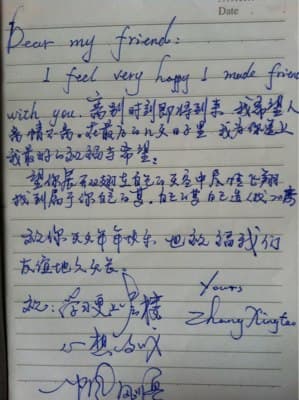 Date
Dear my friend:
I feel very happy I made frien
with you. 离别时刻即将到来 我希望人
离情不离。在最后的 日子里 我为你送上
我最好的祝福与希望:
望你展开双翅在自己的天空中尽情飞翔
找到属于你自己的
祝你天天年年快乐 也祝福我们
友谊地久天长。
祝:学习更上一层楼 Yours
心想事成 Zhang Xingtao
一帆风顺